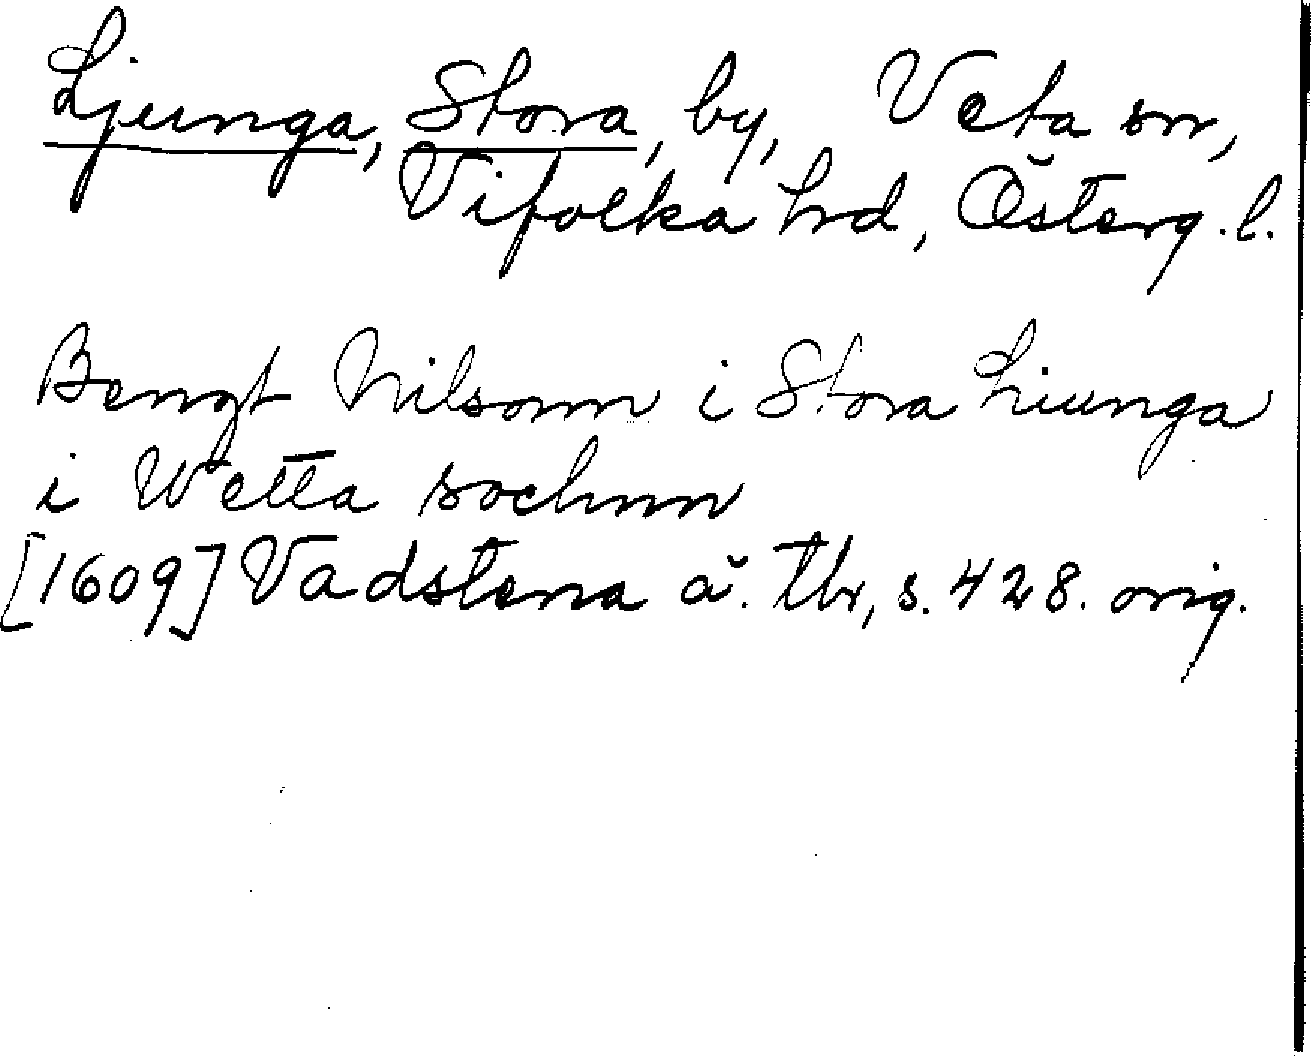 Ljunga, Stora, by, Veta sn,
Vifolka hrd, Österg.l.
Bengt Nilsonn i Stora Liunga
i Wetta sochnn
[1609] Vadstena ä. tb, s. 428. orig.